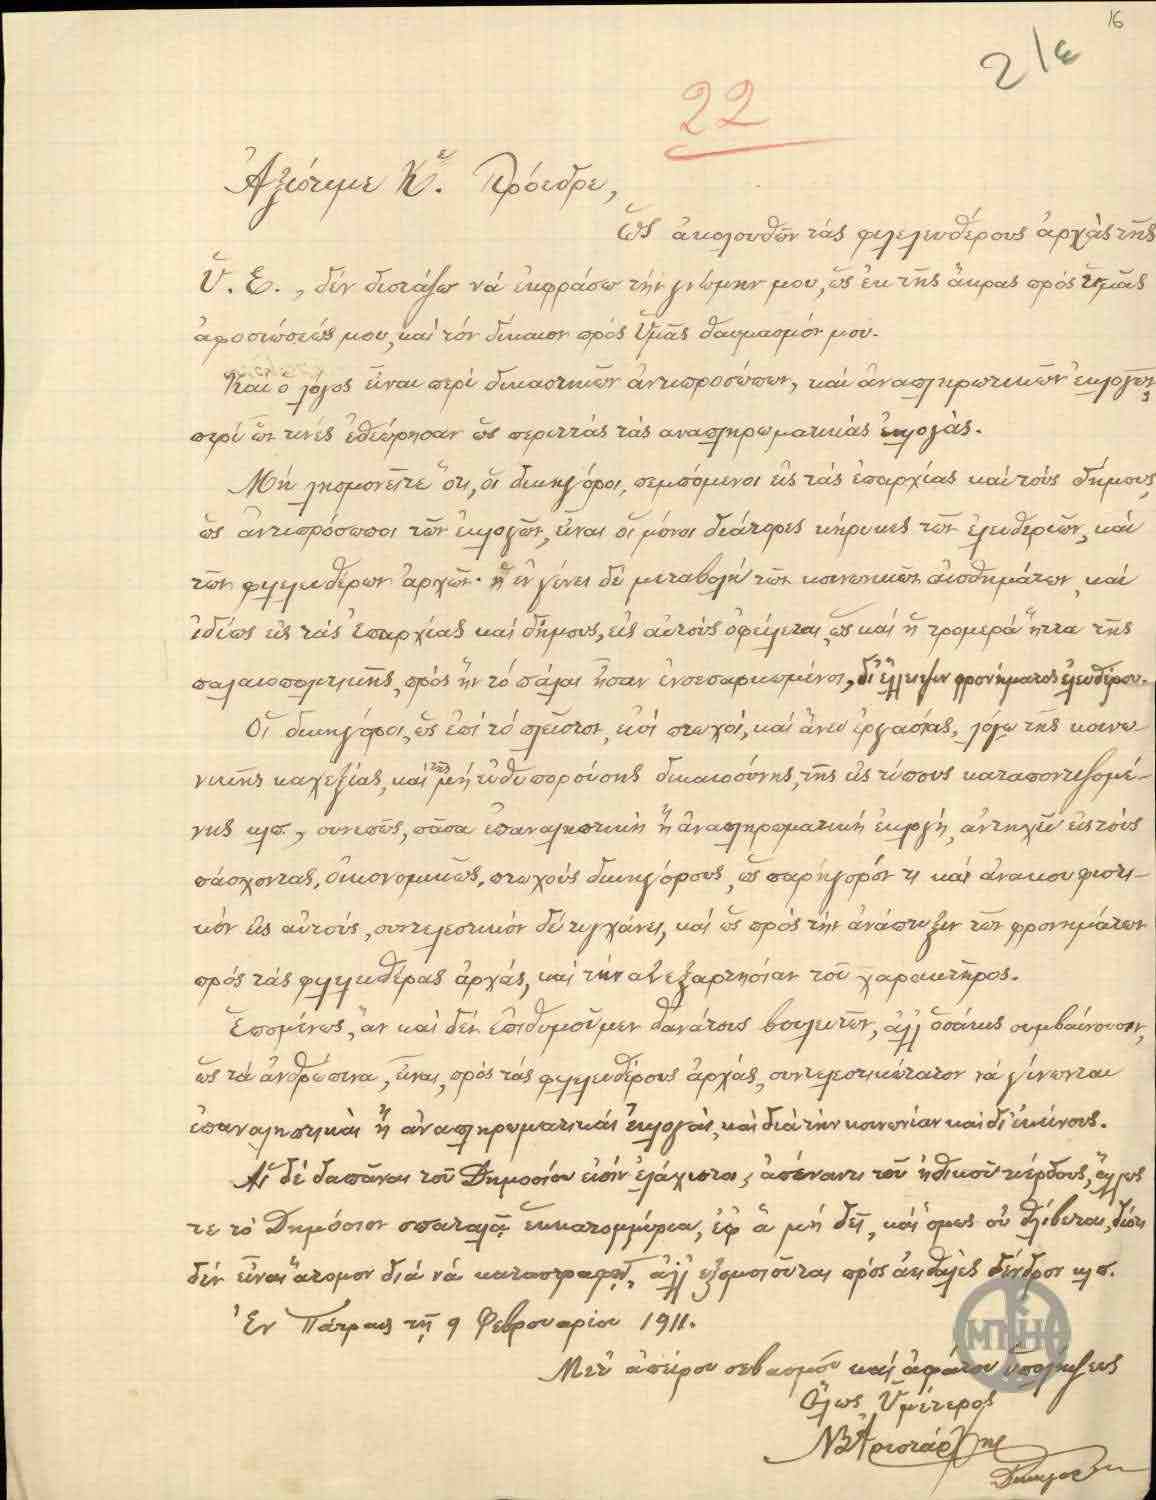 16
2/ε
22
Ἀξιότιμε Κε. Πρόεδρε,
Ὡς ἀκολουθῶν τὰς φιλελευθέρους ἀρχὰς τῆς
Ὑ. Ε., δέν διστάζω νά ἐκφράσω τήν γνώμην μου, ὡς ἐκ τῆς ἄκρας πρός Ὑμᾶς
ἀφοσιώσεώς μου, καί τόν δίκαιον πρός Ὑμᾶς θαυμασμόν μου.
Καί ὁ λόγος εἶναι περί δικαστικῶν ἀντιπροσώπων, καί ἀναπληρωτικῶν ἐκλογῶν,
περί ὧν τινές ἐθεώρησαν ὡς περιττάς τάς αναπληρωματικάς ἐκλογάς.
Μή λησμονεῖτε ὅτι, οἱ δικηγόροι, πεμπόμενοι εἰς τάς ἐπαρχίας καί τούς δήμους,
ὡς ἀντιπρόσωποι τῶν ἐκλογῶν, εἶναι οἱ μόνοι διάτορες κήρυκες τῶν ἐλευθεριῶν, καί
τῶν φιλελευθέρων ἀρχῶν· ἡ ἐν γένει δέ μεταβολή τῶν κοινωνικῶν αἰσθημάτων, καί
ἰδίως εἰς τάς ἐπαρχίας καί δήμους, εἰς αὐτούς ὀφείλεται, ὡς καί ἡ τρομερά ἧττα τῆς
παλαιοπολιτικῆς, πρός ἥν τό πάλαι ἦσαν ἐνσεσαρκωμένοι, δι' ἔλλειψιν φρονήματος ἐλευθέρου.
Οἱ δικηγόροι, ὡς ἐπί τό πλεῖστον, εἰσί πτωχοί, καί ἄνευ ἐργασίας, λόγω τῆς κοινω
νικῆς καχεξίας, καί τῆς μή εὐθυπορούσης δικαιοσύνης, τῆς εἰς τύπους καταποντιζομέ-
νης κλπ., συνεπῶς, πᾶσα ἐπαναληπτική ἤ ἀναπληρωματική ἐκλογή, ἀντηχεῖ εἰς τούς
πάσχοντας, οἰκονομικῶς, πτωχούς δικηγόρους, ὡς παρήγορόν τι καί ἀνακουφιστι-
κόν εἰς αὐτούς, συντελεστικόν δέ τυγχάνει, καί ὡς πρός τήν ἀνάπτυξιν τῶν φρονημάτων
πρός τάς φιλελευθέρας ἀρχάς, καί τήν ανεξαρτησίαν τοῦ χαρακτῆρος.
Ἑπομένως, ἄν καί δέν ἐπιθυμοῦμεν θανάτους βουλευτῶν, ἀλλ' ὁσάκις συμβαίνουσιν,
ὡς τά ἀνθρώπινα, εἶναι, πρός τάς φιλελευθέρους ἀρχάς, συντελεστικώτατον νά γίνωνται
ἐπαναληπτικαί ἤ ἀναπληρωματικαί ἐκλογαί, καί διά τήν κοινωνίαν καί δι' ἐκείνους.
Αἱ δέ δαπάναι τοῦ Δημοσίου εἰσίν ἐλάχισται, ἀπέναντι τοῦ ἠθικοῦ κέρδους, ἄλλως
τε τό Δημόσιον σπαταλᾷ ἑκατομμύρια, ἐφ' ἅ μή δεῖ, καί ὅμως οὐ θλίβεται, διότι
δέν εἶναι ἄτομον διά νά καταστραφῇ, ἀλλ' ἐξομοιοῦται πρός ἀειθαλές δένδρον κλπ.
Ἐν Πάτραις τῇ 9 Φεβρουαρίου 1911.
Μετ' ἀπείρου σεβασμοῦ καί ἀφάτου ὑπολήψεως
Ὅλως Ὑμέτερος
ΝΒ Ἀριστάρχης
Δικηγόρος